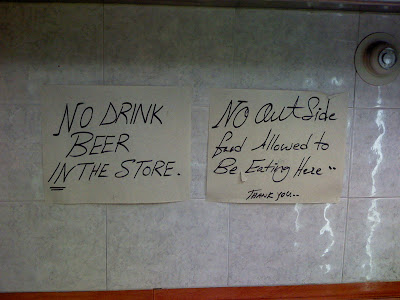 NO DRINK
BEER
IN THE STORE.
NO Out Side
food Allowed to
Be Eating Here..
THANK YOU..